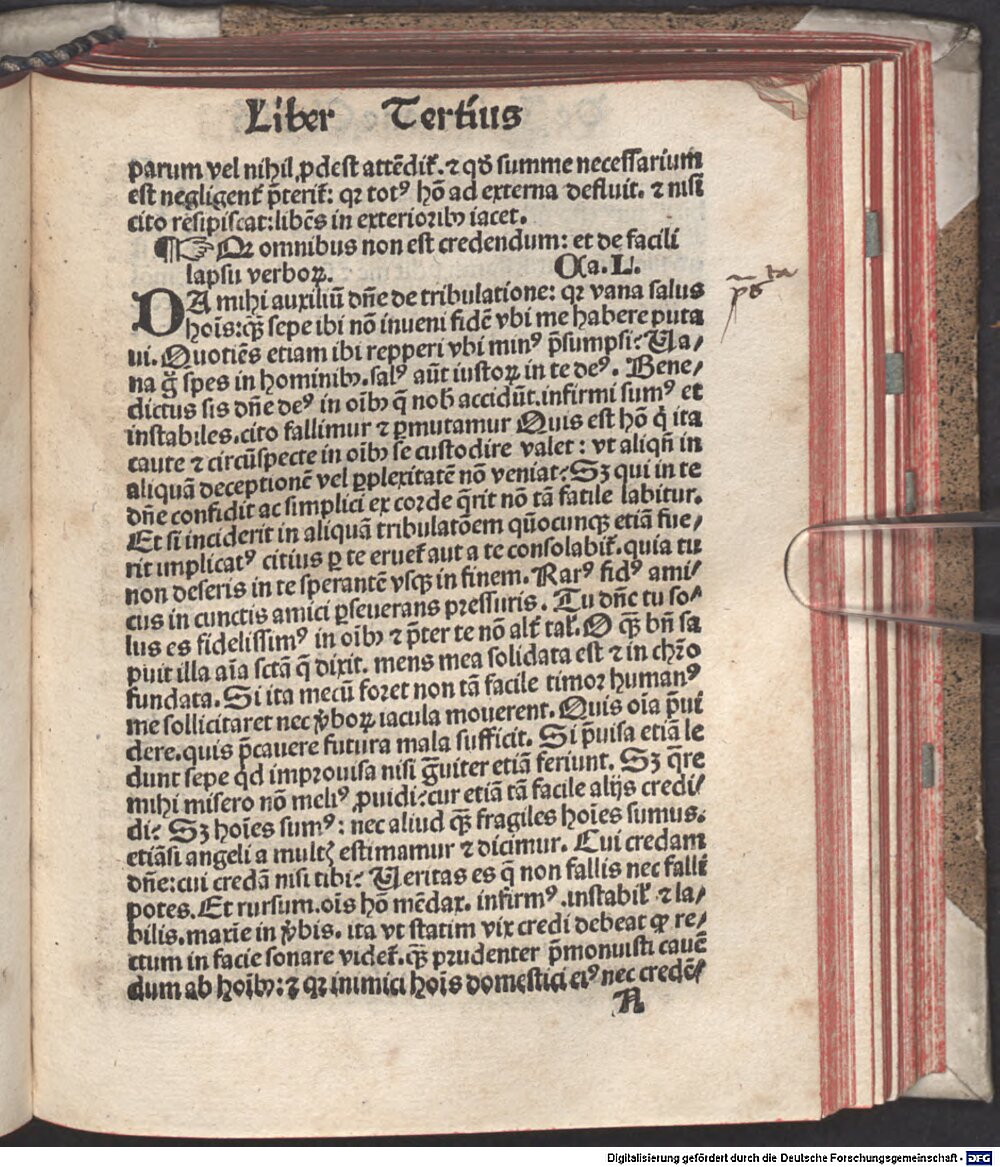 Liber Tertius
parum vel nihil ꝓdest attēdit̃. ⁊ qḋ summe necessarium
est negligent̃ p̄terit̃: qꝛ totꝰ hō ad externa defluit. ⁊ nisi
cito resipiscat: libēs in exteriorib₉ iacet.
¶☞ Qꝛ omnibus non est credendum: et de facili
lapsu verboꝝ. Ca. L.
DA mihi auxiliū dn̄e de tribulatione: qꝛ vana salus
hoīs: qꝫ̄ sepe ibi nō inueni fidē vbi me habere puta
ui. Quotiēs etiam ibi repperi vbi minꝰ p̄sumpsi? Ua⸗
na g̊ spes in hominib₉. salꝰ aūt iustoꝝ in te deꝰ. Bene⸗
dictus sis dn̄e deꝰ in oīb₉ q̄ nob̄ accidūt. infirmi sumꝰ et
instabiles. cito fallimur ⁊ ꝑmutamur Quis est hō q̇ ita
caute ⁊ circūspecte in oīb₉ se custodire valet: vt aliqn̄ in
aliquā deceptionē vel ꝑplexitatē nō veniat? Sꝫ qui in te
dn̄e confidit ac simplici ex corde q̄rit nō tā facile labitur.
Et si inciderit in aliquā tribulatōem quōcunqꝫ etiā fue⸗
rit implicatꝰ citius ꝑ te eruet̃ aut a te consolabit̃. quia tu
non deseris in te sperantē vsqꝫ in finem. Rarꝰ fidꝰ ami⸗
cus in cunctis amici ꝑseuerans pressuris. Tu dn̄e tu so⸗
lus es fidelissimꝰ in oīb₉ ⁊ p̄ter te nō alt̃ tal̃. O qꝫ̄ bn̄ sa
puit illa aīa sctā q̄ dixit. mens mea solidata est ⁊ in chr̄o
fundata. Si ita mecū foret non tā facile timor humanꝰ
me sollicitaret nec v̓boꝝ iacula mouerent. Quis oīa p̄ui
dere. quis p̄cauere futura mala sufficit. Si p̄uisa etiā le
dunt sepe qd̄ improuisa nisi g̓uiter etiā feriunt. Sꝫ q̄re
mihi misero nō meliꝰ ꝓuidi? cur etiā tā facile alijs credi⸗
di? Sꝫ hoīes sumꝰ: nec aliud qꝫ̄ fragiles hoīes sumus.
etiāsi angeli a multꝭ estimamur ⁊ dicimur. Cui credam
dn̄e: cui credā nisi tibi? Ueritas es q̄ non fallis nec falli
potes. Et rursum. oīs hō mēdax. infirmꝰ. instabil̃ ⁊ la⸗
bilis. maxīe in v̓bis. ita vt statim vix credi debeat ꝙ re⸗
ctum in facie sonare videt̃. qꝫ̄ prudenter p̄monuisti cauē
dum ab hoīb₉: ⁊ qꝛ inimici hoīs domestici eiꝰ nec credē⸗
A
Digitalisierung gefördert durch die Deutsche Forschungsgemeinschaft - DFG